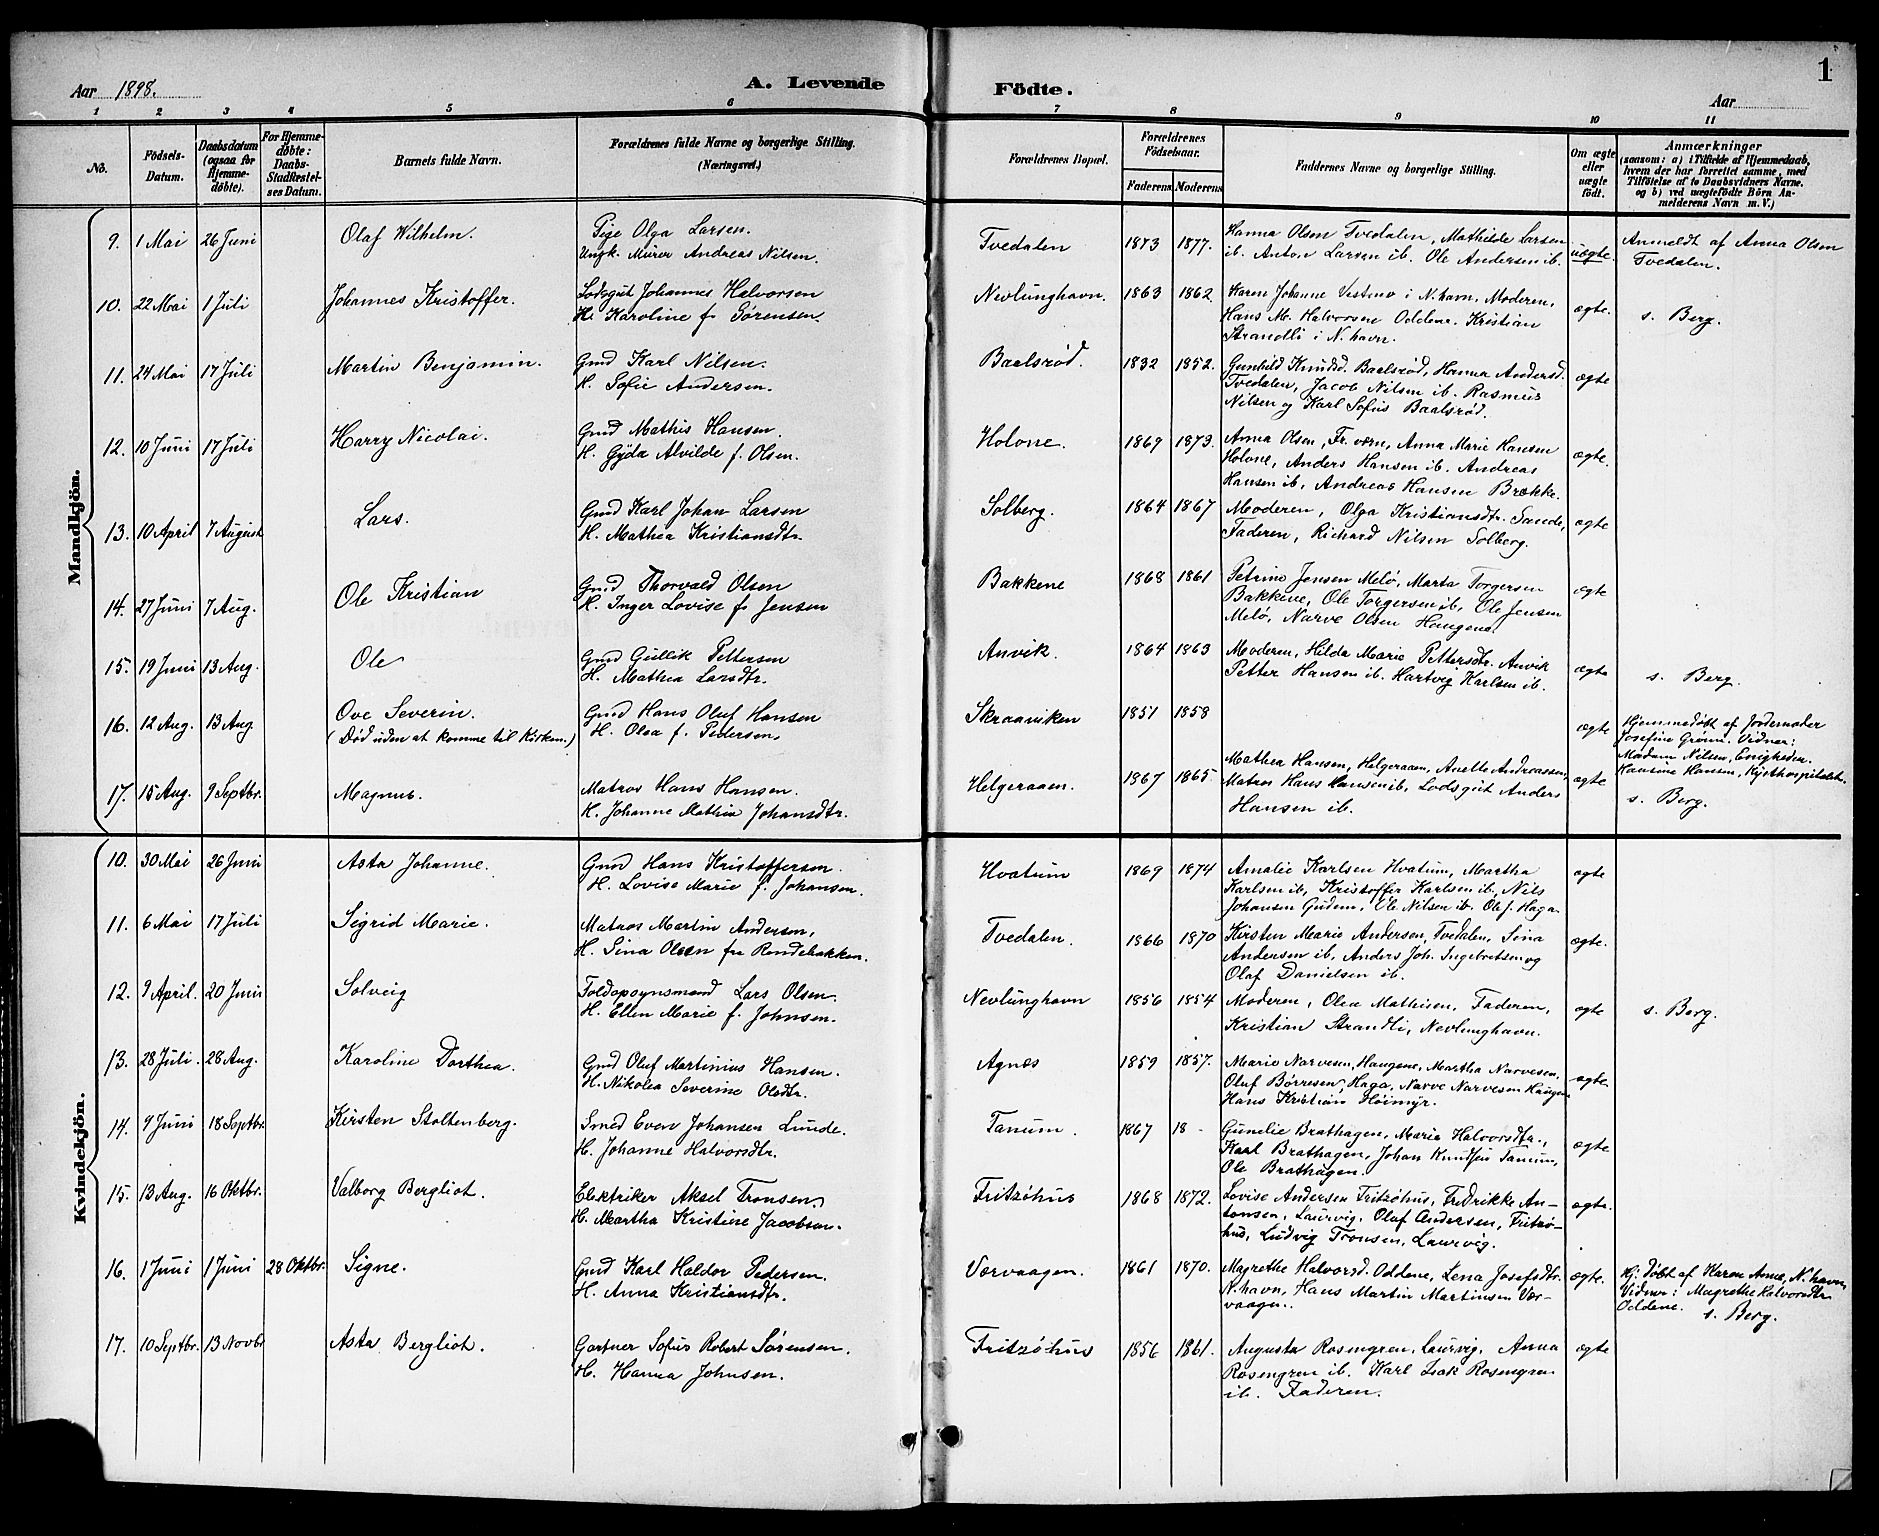 1
Aar 1898. A. Levende Födte. Aar
1 2 3 4 5 6 7 8 9 10 11
No. Födsels-Datum. Daabsdatum (ogsaa for Hjemmedöbte). For Hjemmedöbte: Daabs-Stadfæstelses Datum. Barnets fulde Navn. Forældrenes fulde Navne og borgerlige Stilling. (Næringsvei.) Forældrenes Bopæl. Forældrenes Födselsaar. Faderens Moderens Faddernes Navne og borgerlige Stilling. Om ægte eller uægte födt. Anmærkninger (saasom: a) i Tilfælde af Hjemmedaab, hvem der har forrettet samme, med Tilföielse af to Daabsvidners Navne, og b) ved uægtefödte Börn Anmelderens Navn m. V.)
Mandkjön.
9. 1 Mai 26 Juni Olaf Wilhelm. Pige Olga Larsen. Tvedalen 1873 1877. Hanna Olsen Tvedalen, Mathilde Larsen uægte. Anmeldt af Anna Olsen
Ungk. Murer Andreas Nilsen. ib. Anton Larsen ib. Ole Andersen ib. Tvedalen.
10. 22 Mai 1 Juli Johannes Kristoffer. Lodsgut Johannes Halvorsen Nevlunghavn. 1863 1862 Karen Johanne Vestem i N.havn, Moderen, ægte. s. Berg.
H. Karoline f. Sørensen. Hans M. Halvorsen Oddene. Kristian
Strandli i N.havn.
11. 24 Mai 17 Juli Martin Benjamin. Gmd Karl Nilsen. Baalsrød 1832 1852. Gunhild Knudsd. Baalsrød, Hanna Andersd. ægte
H. Sofie Andersen. Tvedalen, Jacob Nilsen ib. Rasmus
Nilsen og Karl Sofus Baalsrød.
12. 10 Juni 17 Juli Harry Nicolai. Gmd Mathis Hansen. Holone. 1869 1873. Anna Olsen, Fr.værn, Anna Marie Hansen ægte.
H. Gyda Alvilde f. Olsen. Holone, Anders Hansen ib. Andreas
Hansen ib, Andreas Hansen Brække.
13. 10 April 7 August Lars. Gmd Karl Johan Larsen Solberg. 1864 1867 Moderen, Olga Kristiansdtr. Sande, ægte
H. Mathea Kristiansdtr. Faderen, Richard Nilsen Solberg.
14. 27 Juni 7 Aug. Ole Kristian Gmd Thorvald Olsen Bakkene 1868 1861 Petrine Jensen Melø, Marta Torgersen ægte
H. Inger Lovise f. Jensen Bakkene, Ole Torgersen ib, Ole Jensen
Melø, Narve Olsen Haugene.
15. 19 Juni 13 Aug. Ole Gmd Gullik Pettersen Anvik. 1864 1863 Moderen, Hilda Marie Pettersdtr. Anvik ægte s. Berg.
H. Mathea Larsdtr. Petter Hansen ib. Hartvig Karlsen ib.
16. 12 Aug. 13 Aug Ove Severin. Gmd Hans Oluf Hansen Skraaviken 1851 1858 ægte Hjemmedøbt af Jordemoder
(Død uden at komme til Kirken.) H. Olea f. Pedersen. Josefine Grønn. Vidner:
Madam Nilsen, Enigheden.
Hansine Hansen, Kysthospitalet.
17. 15 Aug. 9 Septbr. Magnus. Matros Hans Hansen. Helgeraaen. 1867 1865. Mathea Hansen, Helgeraaen, Anette Andreassen, ægte s. Berg.
H. Johanne Mathea Johansdtr. Matros Hans Hansen ib, Lodsgut Anders
Hansen ib.
Kvindekjön.
10. 30 Mai 26 Juni Asta Johanne. Gmd Hans Kristoffersen. Hvatum 1869 1874 Amalie Karlsen Hvatum, Martha ægte
H. Lovise Marie f. Johansen. Karlsen ib, Kristoffer Karlsen ib. Nils
Johansen Gudem, Ole Nilsen ib. Ole J. Haga.
11. 6 Mai 17 Juli Sigrid Marie. Matros Martin Andersen, Tvedalen. 1866 1870 Kirsten Marie Andersen, Tvedalen, Sina ægte.
H. Sina Olsen fra Rondebakken. Andersen ib, Anders Joh. Ingebretsen og
Olaf Danielsen ib.
12. 9 April. 20 Juni Solveig Toldopsynsmand Lars Olsen. Nevlunghavn 1856 1854 Moderen, Olea Mathisen, Faderen, ægte s. Berg.
H. Ellen Marie f. Johnsen. Kristian Strandli, Nevlunghavn.
13. 28 Juli. 28 Aug. Karoline Dorthea. Gmd Oluf Martinius Hansen. Agnes 1859 1857. Marie Narvesen, Haugene, Martha Narvesen, ægte.
H. Nikolea Severine Olsdtr. Oluf Børresen, Haga, Narve Narvesen Haugene
Hans Kristian Høimyr.
14. 9 Juni 18 Septbr. Kirsten Stoltenberg. Smed Even Johansen Lunde. Tanum. 1867 18 - Gunelie Brathagen, Marie Halvorsdtr., ægte
H. Johanne Halvorsdtr. Karl Brathagen, Johan Knudsen Tanum,
Ole Brathagen.
15. 13 Aug. 16 Oktbr. Valborg Bergliot. Elektriker Aksel Tronsen Fritzøhus 1868 1872. Lovise Andersen Fritzøhus, Fredrikke An- ægte.
H. Martha Kristine Jacobsen. tonsen, Laurvig. Olaf Andersen, Fritzø-
hus, Ludvig Tronsen, Laurvig.
16. 1 Juni 1 Juni 28 Oktbr. Signe. Gmd Karl Haldor Pedersen. Værvaagen. 1861 1870. Magrethe Halvorsd. Oddene, Lena Josefsdtr. ægte. Hj: døbt af Karen Anne, N.havn
H. Anna Kristiansdtr. N.havn, Hans Martin Martinsen Vær- Vidner: Magrethe Halvorsdtr
vaagen. Oddene. s. Berg.
17. 10 Septbr. 13 Novbr Asta Bergliot. Gartner Sofus Robert Sørensen. Fritzøhus 1856 1861. Augusta Rosengren, Laurvig, Anna ægte
H. Hanna Johnsen. Rosengren ib. Karl Isak Rosengren
ib. Faderen.